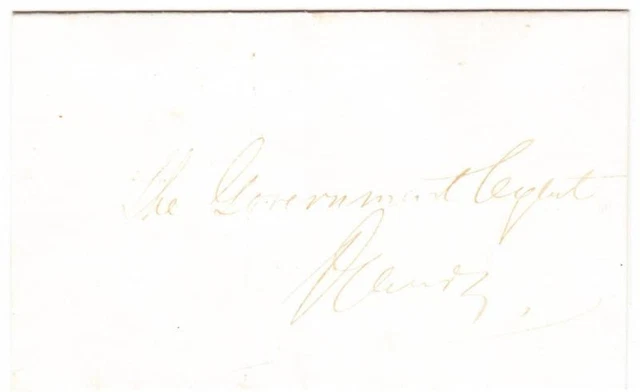 The Government Agent
Kandy